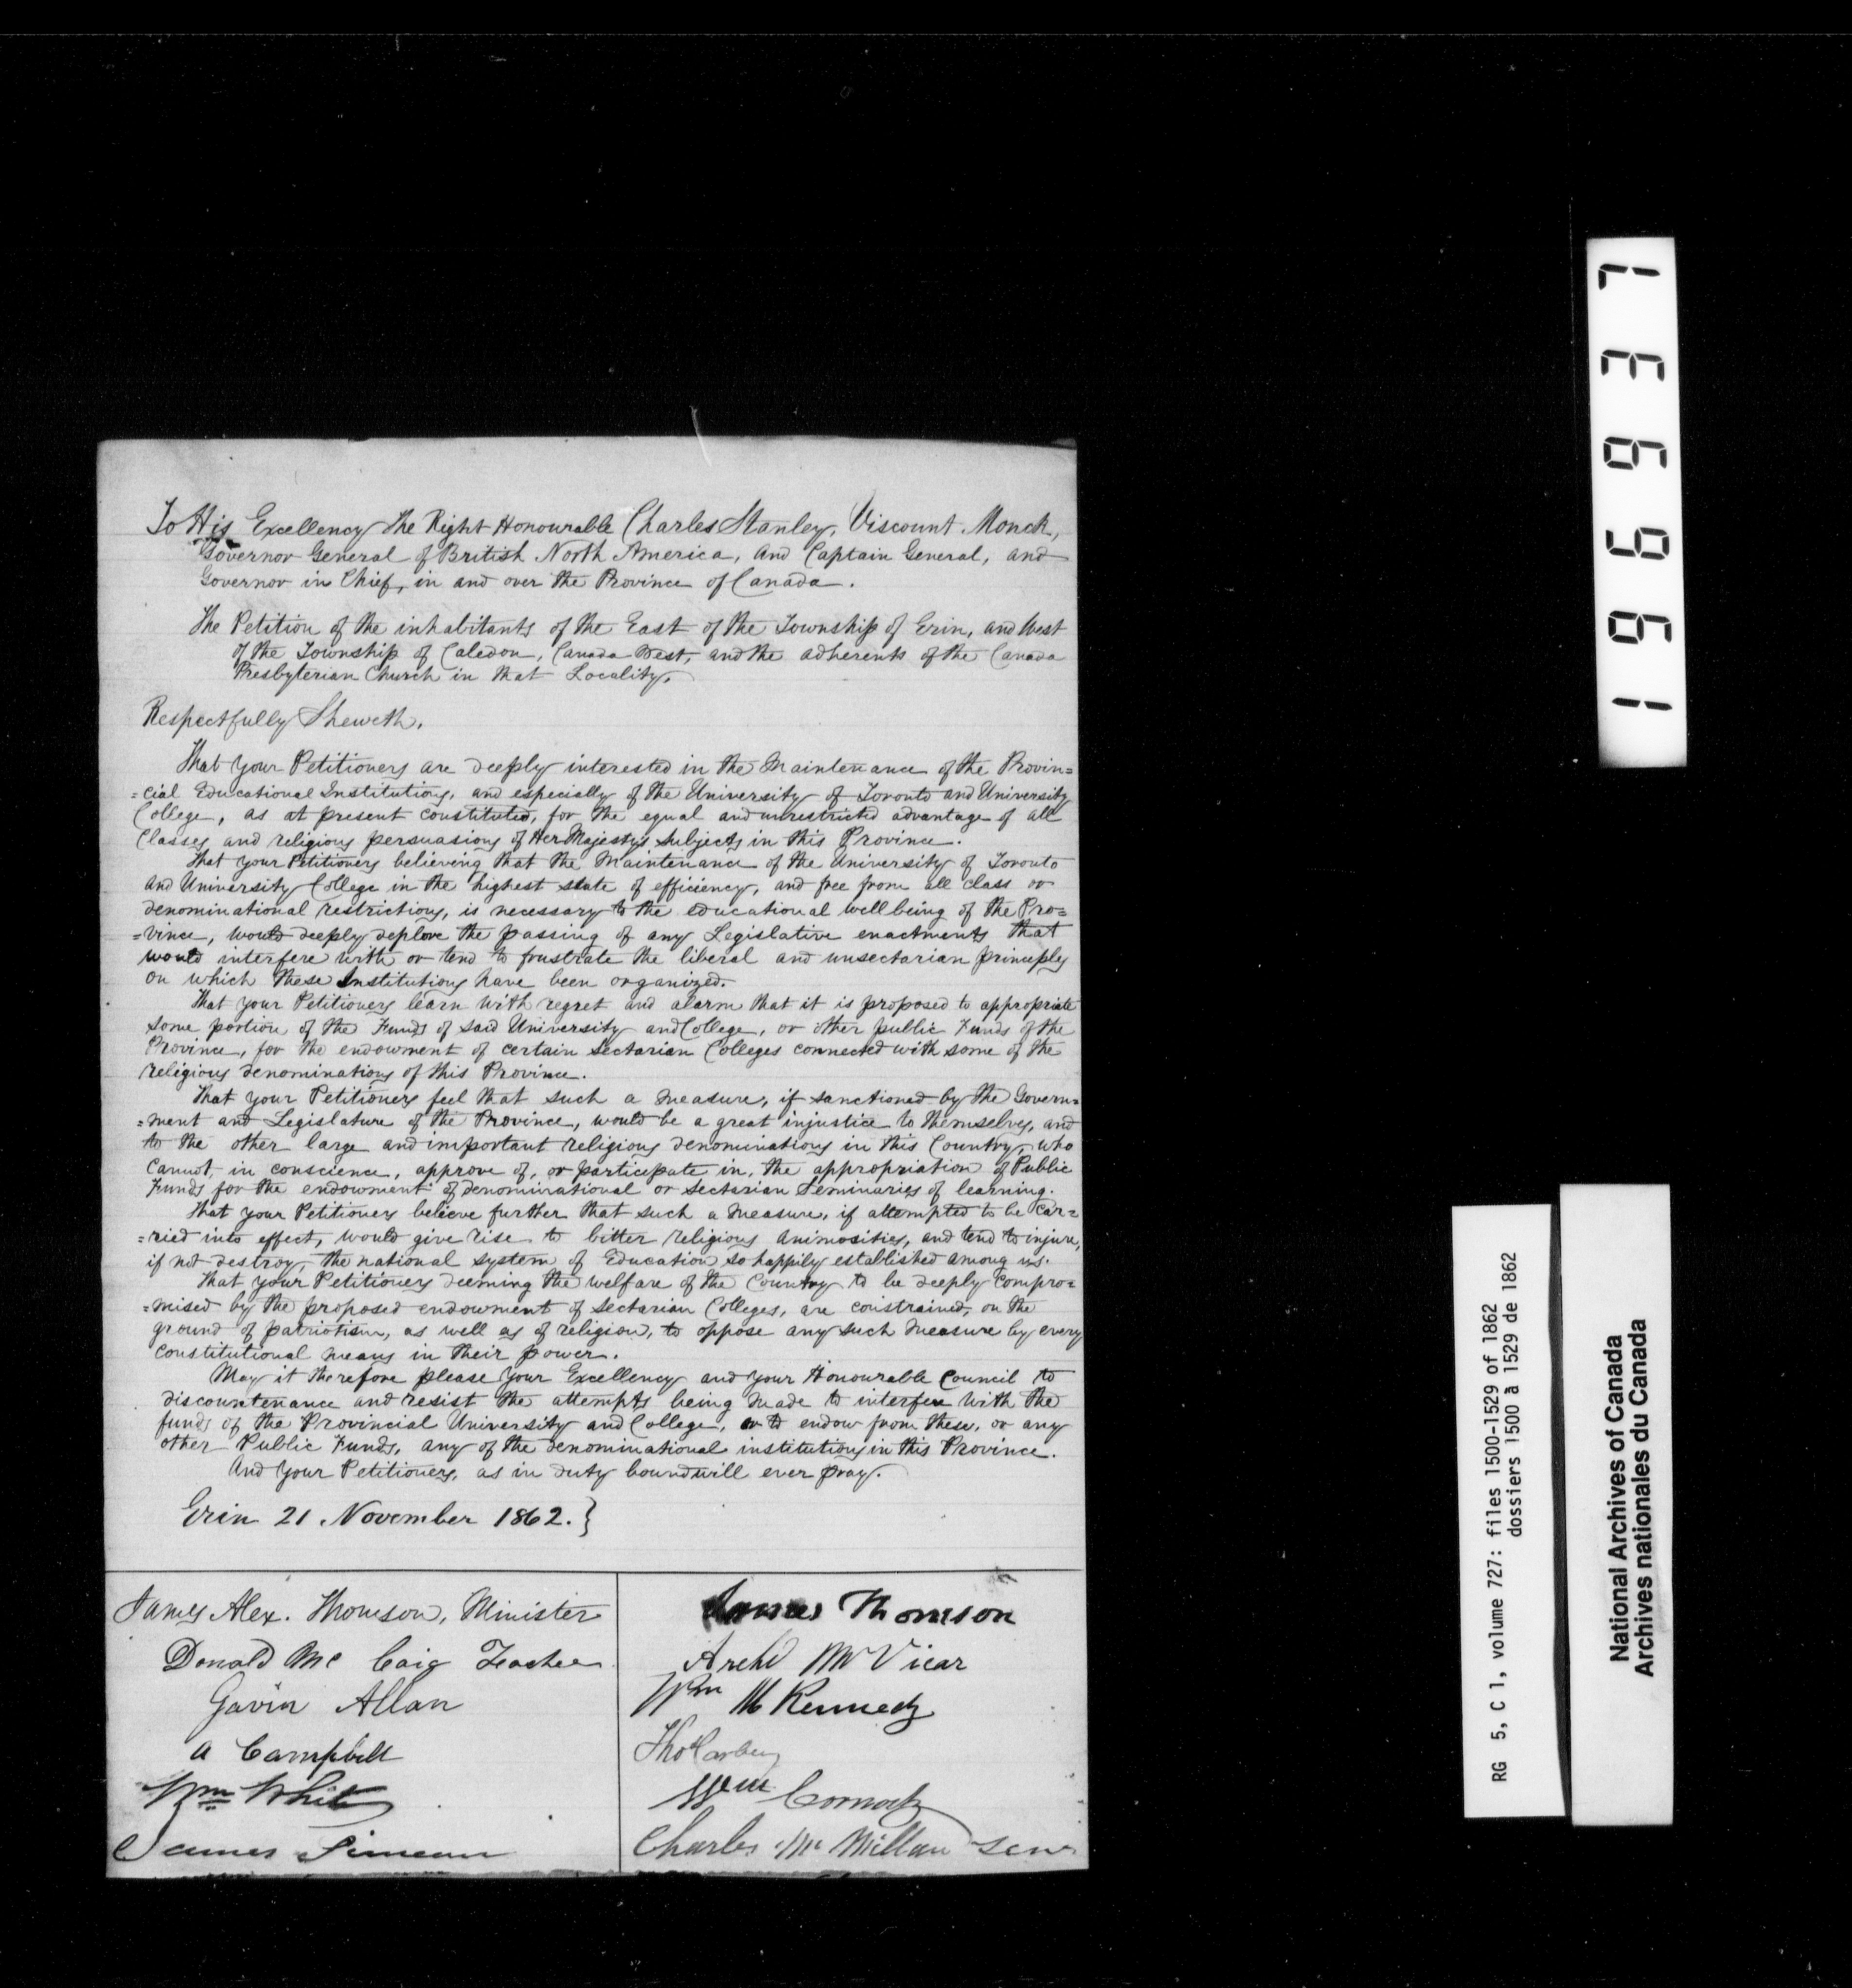 To His Excellency the Right Honourable Charles Stanley, Viscount Monck,
Governor General of British North America, and Captain General, and
Governor in Chief, in and over the Province of Canada.
The Petition of the inhabitants of the East of the Township of Erin, and West
of the Township of Caledon, Canada West, and the adherents of the Canada
Presbyterian Church in that Locality,
Respectfully Sheweth,
That your Petitioners are deeply interested in the Maintenance of the Provin=
=cial Educational Institutions, and especially of the University of Toronto and University
College, as at present constituted, for the equal and unrestricted advantage of all
Classes and religious persuasions of Her Majesty's Subjects in this Province.
That your Petitioners believing that the Maintenance of the University of Toronto
and University College in the highest state of efficiency, and free from all class or
denominational restrictions, is necessary to the educational wellbeing of the Pro=
=vince, would deeply deplore the passing of any Legislative enactments that
would interfere with or tend to frustrate the liberal and unsectarian principles
on which these Institutions have been organized.
That your Petitioners learn with regret and alarm that it is proposed to appropriate
some portion of the Funds of said University and College, or other public Funds of the
Province, for the endowment of certain Sectarian Colleges connected with some of the
religious denominations of this Province.
That your Petitioners feel that such a measure, if sanctioned by the Govern=
=ment and Legislature of the Province, would be a great injustice to themselves, and
to the other large and important religious denominations in this Country, who
cannot, in conscience, approve of, or participate in, the appropriation of Public
Funds for the endowment of denominational or sectarian Seminaries of learning.
That your Petitioners believe further that such a measure, if attempted to be car=
=ried into effect, would give rise to bitter religious animosities, and tend to injure,
if not destroy, the national system of Education so happily established among us.
That your Petitioners deeming the welfare of the Country to be deeply compro=
=mised by the proposed endowment of sectarian Colleges, are constrained, on the
ground of patriotism, as well as of religion, to oppose any such measure by every
constitutional means in their power.
May it therefore please your Excellency and your Honourable Council to
discountenance and resist the attempts being made to interfere with the
funds of the Provincial University and College, or to endow from these, or any
other Public Funds, any of the denominational institutions in this Province.
And your Petitioners, as in duty bound will ever pray.
Erin 21 November 1862. }
James Alex. Thomson, Minister
Donald Mc Caig Teacher
Gavin Allan
A Campbell
Wm White
James
James Thomson
Archd McVicar
Wm McKennedy
Tho
Wm Cornock
Charles Mc Millan Senr
199637
RG 5, C 1, volume 727: files 1500-1529 of 1862
dossiers 1500 à 1529 de 1862
National Archives of Canada
Archives nationales du Canada